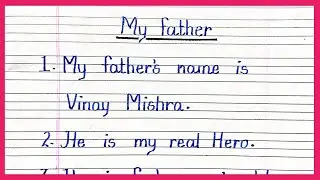 My father
1. My father's name is
Vinay Mishra.
2. He is my real Hero.